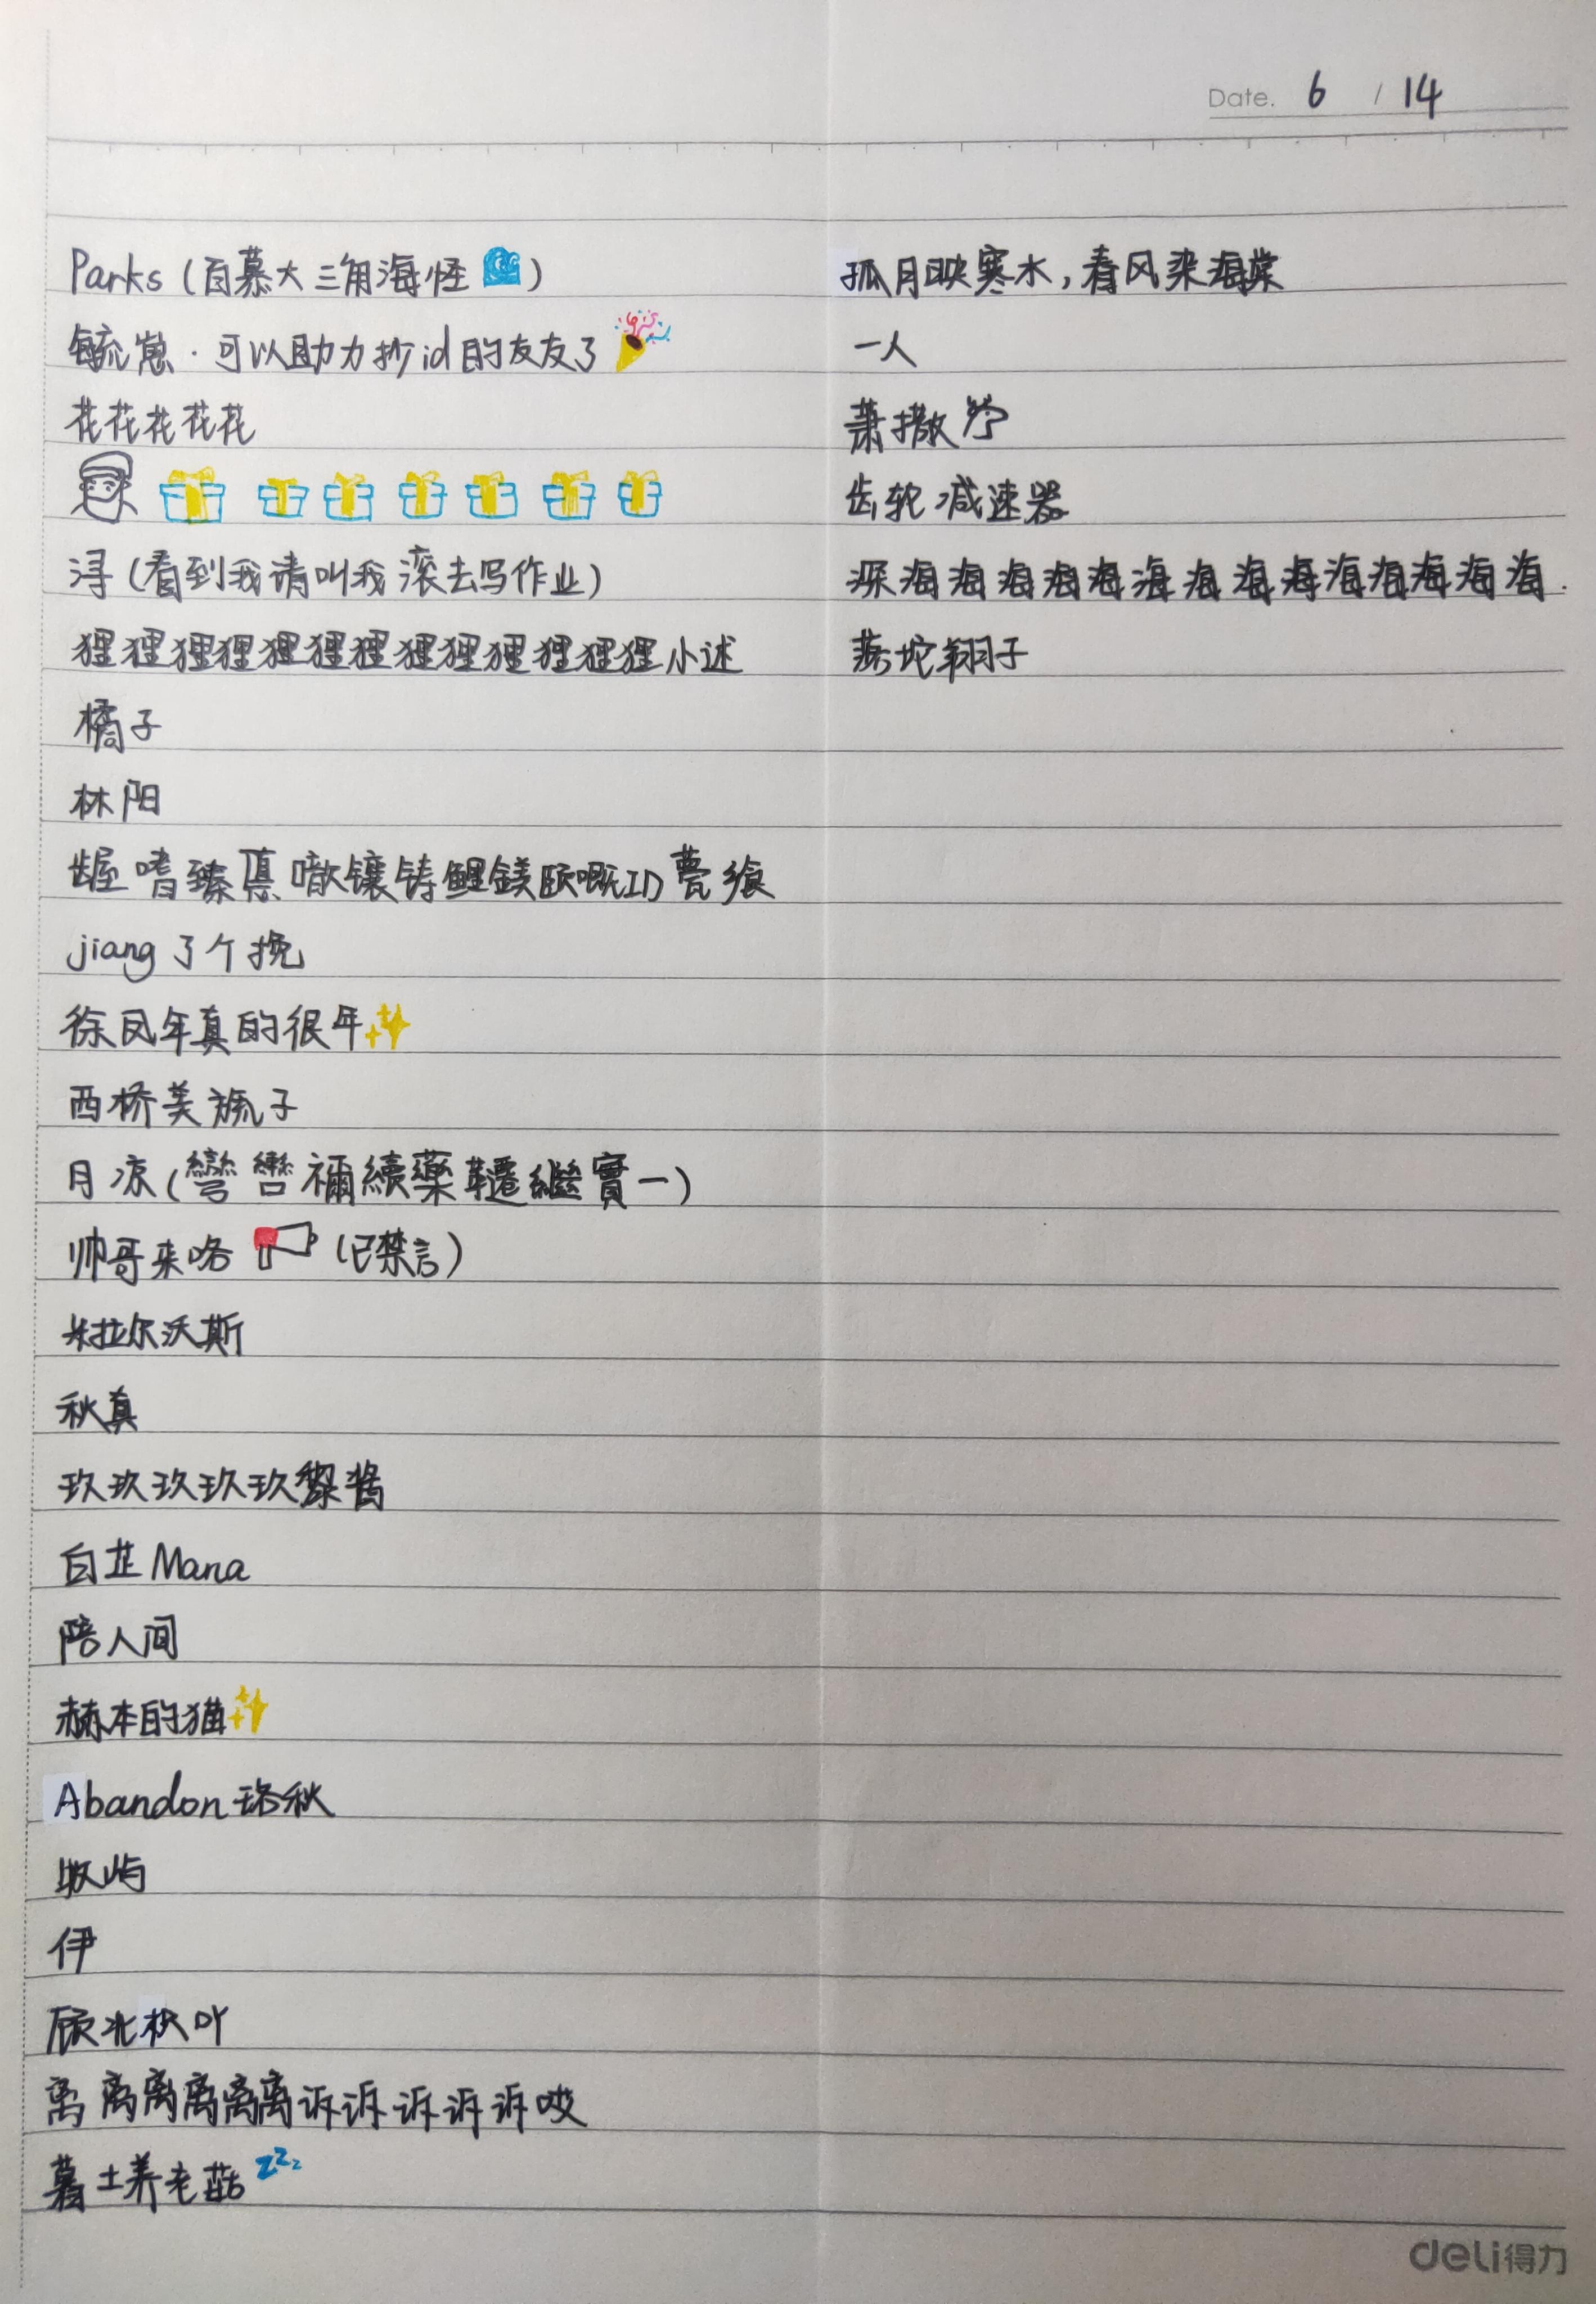 Date. 6 / 14
Parks (百慕大三角海怪🌊)
毓崽·可以助力抄id的友友了🎉
花花花花花
🎅🎁🎁🎁🎁🎁🎁🎁
浔(看到我请叫我滚去写作业)
狸狸狸狸狸狸狸狸狸狸狸狸狸小述
橘子
林阳
龌嗜臻噷镶铸鲤鎂嘅ID甍飨
jiang了个挽
徐凤年真的很年✨
西桥美旒子
月凉(彎巒禰續藥韆繼實一)
帅哥来咯📢(已禁言)
米拉尔沃斯
秋真
玖玖玖玖玖黎酱
白芷Mana
陪人间
赫本的猫✨
Abandon珞秋
屿
伊
顾北枫吖
离离离离离离诉诉诉诉诉吱
暮土养老菇zzz
孤月映寒水,春风染海棠
一人
萧撒
齿轮减速器
深海海海海海海海海海海海海海海.
坨翔子
deli得力